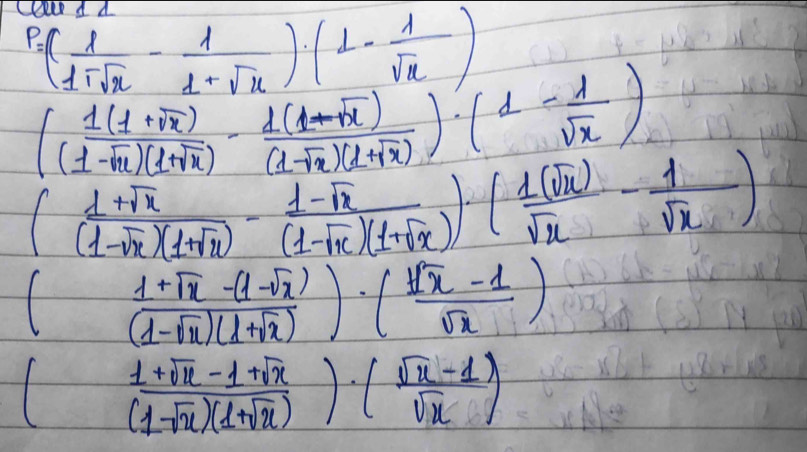 Câu 11
P=(1/(1-√x) - 1/(1+√x)) · (1 - 1/√x)
(1(1+√x)/((1-√x)(1+√x)) - 1(1-√x)/((1-√x)(1+√x))) · (1 - 1/√x)
((1+√x)/((1-√x)(1+√x)) - (1-√x)/((1-√x)(1+√x))) · (1(√x)/√x - 1/√x)
((1+√x-(1-√x))/((1-√x)(1+√x))) · ((√x-1)/√x)
((1+√x-1+√x)/((1-√x)(1+√x))) · ((√x-1)/√x)